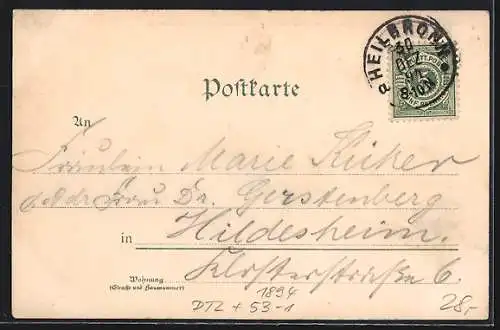 HEILBRONN
30
DEZ
8-10N
Postkarte
An
Fräulein Marie Küker
Adr. Frau Dr. Gerstenberg
in Hildesheim.
Wohnung
(Straße und Hausnummer)
Klosterstraße 6.
1894
DTZ + 53-1
28,-